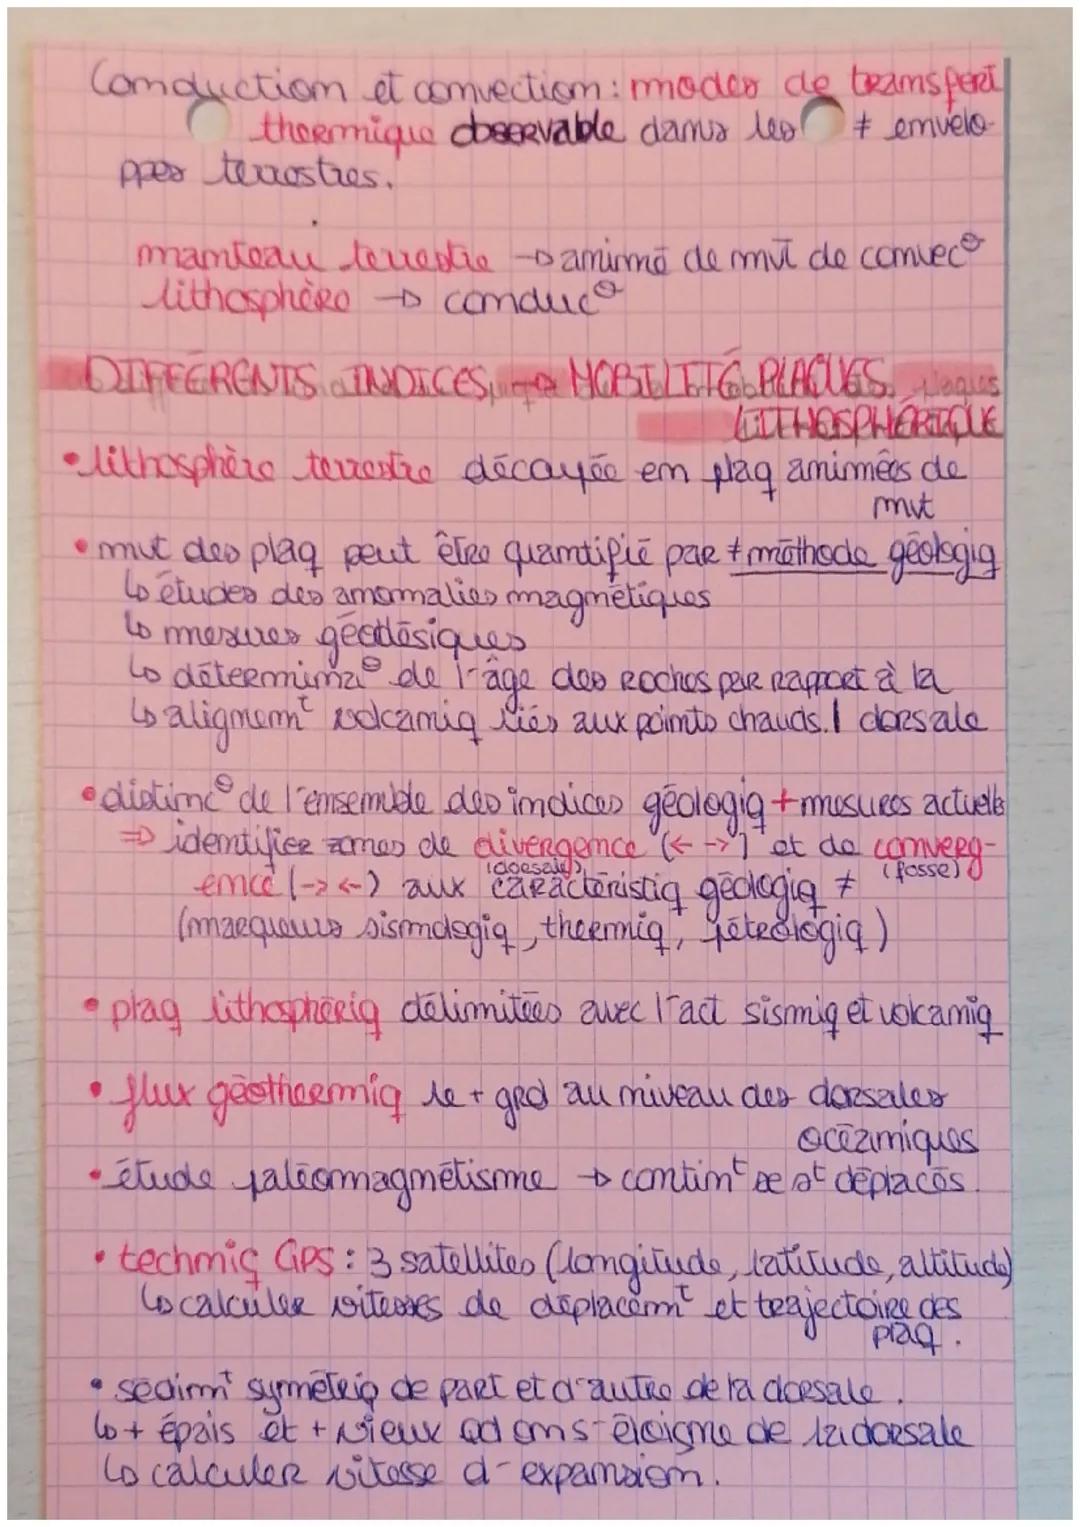 Conduction et convection : modes de transfert
thermique observable dans les ≠ envelo-
ppes terrestres.
manteau terrestre → animé de mvt de convec°
lithosphère → conduc°
DIFFÉRENTS INDICES → MOBILITÉ PLAQUES
LITHOSPHÉRIQUE
• lithosphère terrestre découpée en plaq animées de
mvt
• mvt des plaq peut être quantifié par ≠ méthode géologiq
↳ études des anomalies magnétiques
↳ mesures géodésiques
↳ détermina° de l'âge des roches par rapport à la
↳ alignemt volcaniq liés aux points chauds. | dorsale
• distinc° de l'ensemble des indices géologiq + mesures actuelles
⇒ identifier zones de divergence (← →) et de converg-
(dorsale) (fosse)
ence (→ ←) aux caractéristiq géologiq ≠
(marqueurs sismologiq, thermiq, pétrologiq)
• plaq lithosphériq délimitées avec l'act sismiq et volcaniq
• flux géothermiq le + grd au niveau des dorsales
océaniques
• étude paléomagnétisme → contint se st déplacés.
• techniq GPS : 3 satellites (longitude, latitude, altitude)
↳ calculer vitesses de déplacemt et trajectoire des
plaq.
• sédimt symétriq de part et d'autre de la dorsale.
↳ + épais et + vieux qd on s'éloigne de la dorsale
↳ calculer vitesse d'expansion.